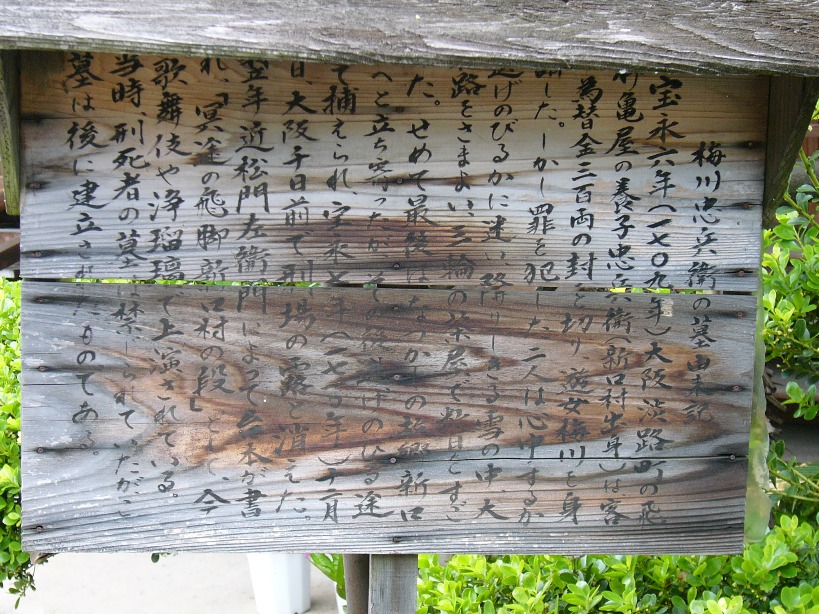 梅川忠兵衛の墓由来記
宝永六年(一七〇九年)大阪淡路町の飛
亀屋の養子忠兵衛(新口村出身)は客
為替金三百両の封を切り遊女梅川を身
した。しかし罪を犯した二人は心中するか
逃げのびるかに迷い降りしきる雪の中、大
路をさまよい、三輪の茶屋で数日をすご
た。せめて最後はなつかしの故郷新口
へと立ち寄ったがその後逃げのびる途
て捕えられ、宝永七年(一七一〇年)十二月
日、大阪千日前で刑場の露と消えた。
翌年近松門左衛門によって台本が書
れ、「冥途の飛脚新口村の段」として、今
歌舞伎や浄瑠璃で上演されている。
当時、刑死者の墓は禁じられていたがこ
墓は後に建立されたものである。